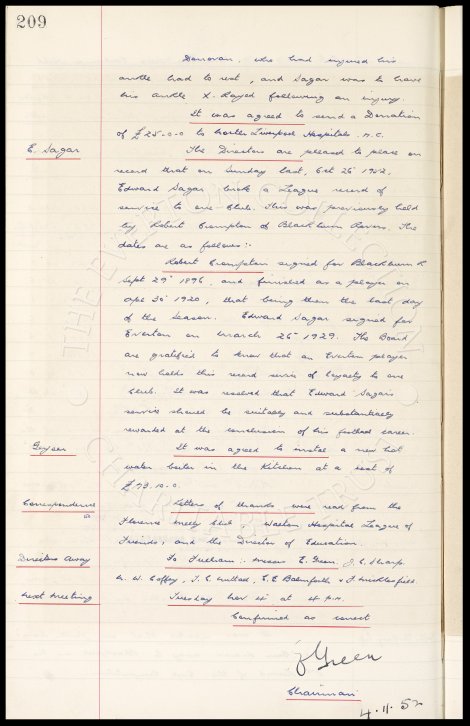 209
Donovan, who had injured his
ankle had to rest, and Sagar was to have
his ankle X. Rayed following an injury.
It was agreed to send a Donation
of £25-0-0 to Liverpool Hospitals. M.C.
E. Sagar
The Directors are pleased to place on
record that on Sunday last, Oct 26th 1952,
Edward Sagar broke a League record of
service to one Club. This was previously held
by Robert Crompton of Blackburn Rovers. The
dates are as follows:-
Robert Crompton signed for Blackburn R
Sept 29th 1896, and finished as a player on
Apl 30th 1920, that being then the last day
of the season. Edward Sagar signed for
Everton on March 26th 1929. The Board
are gratified to know that an Everton player
now holds this record service of loyalty to one
Club. It was resolved that Edward Sagar's
service should be suitably and substantially
rewarded at the conclusion of his football career.
Geyser
It was agreed to instal a new hot
water boiler in the Kitchen at a cost of
£73.10.0.
Correspondence
Letters of thanks were read from the
Florence Melly Club, Walton Hospital League of
Friends, and the Director of Education.
Directors Away
To Fulham:- Messrs E. Green, J. C. Sharp,
N. W. Coffey, T. C. Nuttall, E. E. Bainforth & F. Micklesfield.
Next Meeting
Tuesday Nov 4th at 4 P.M.
Confirmed as correct
Green
Chairman
4.11.52
THE EVERTON COLLECTION
CHARITABLE TRUST